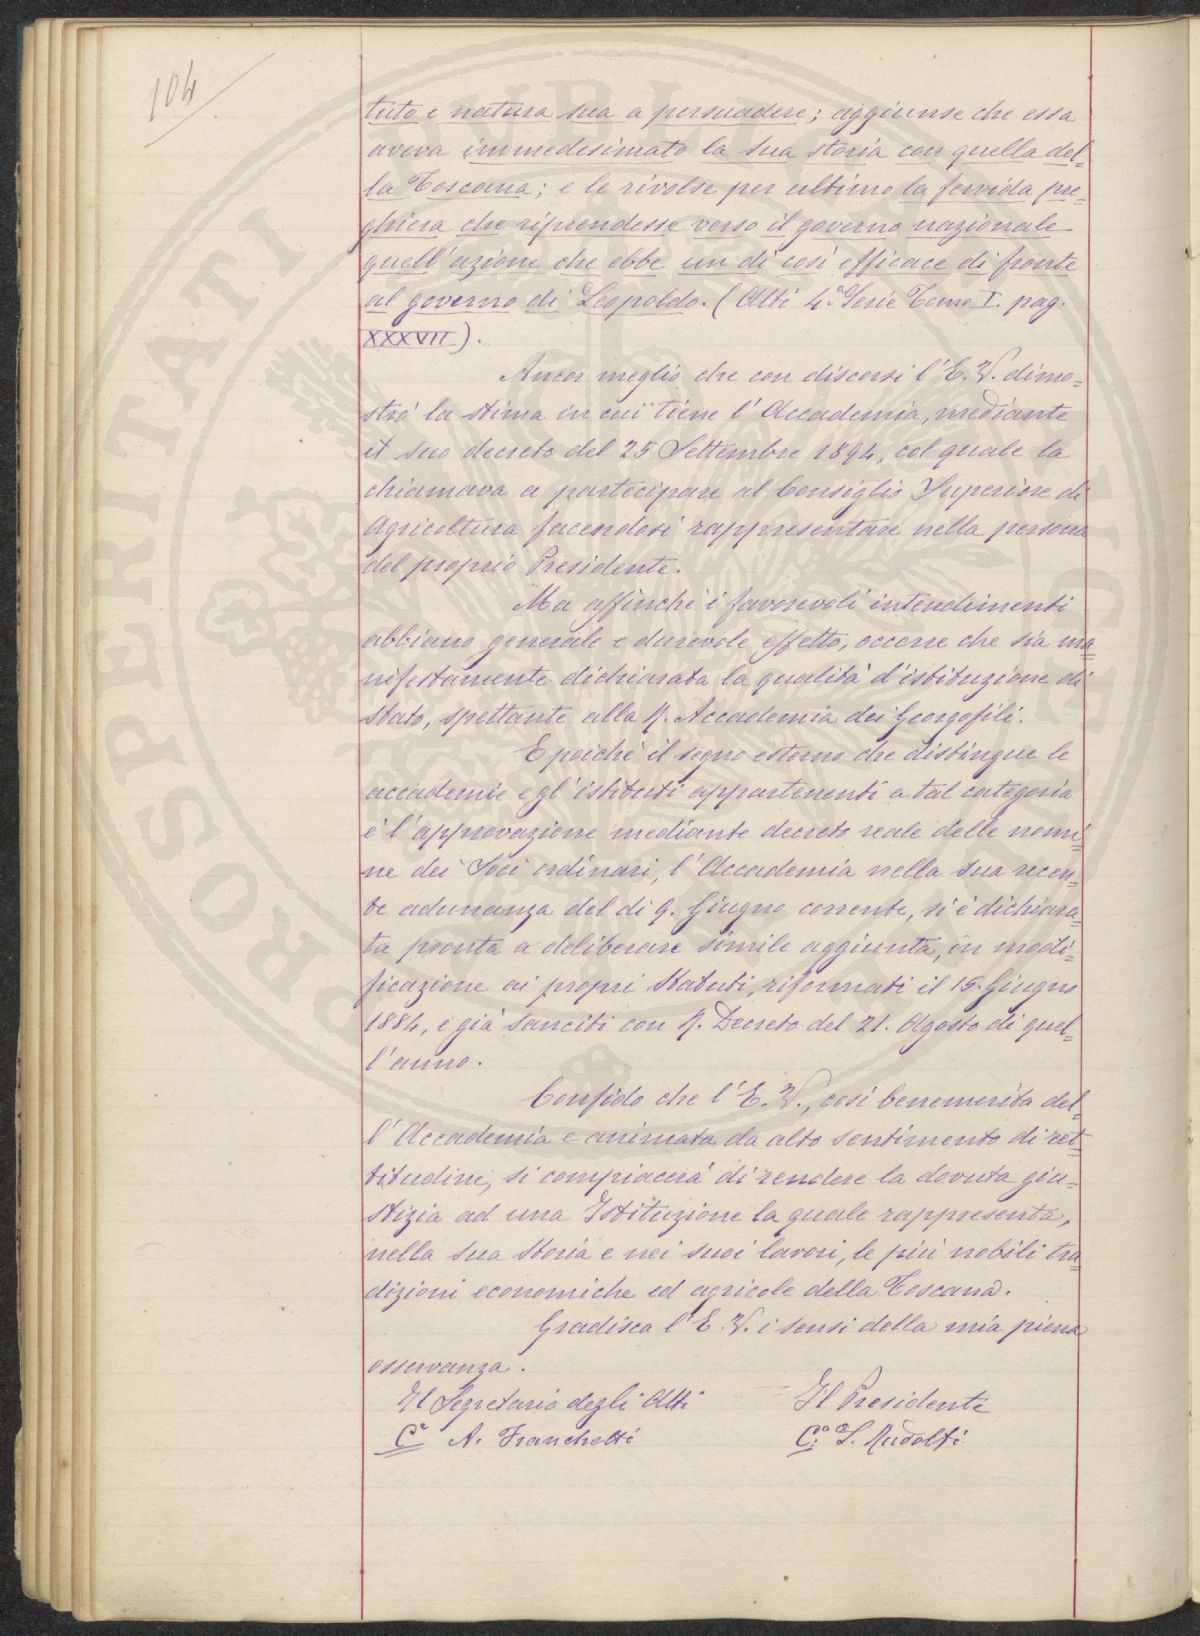 104
tuto e natura sua a persuadere; aggiunse che essa
aveva immedesimato la sua storia con quella del=
la Toscana; e le rivolse per ultimo la fervida pre=
ghiera che riprendesse verso il governo nazionale
quell'azione che ebbe un dì così efficace di fronte
al governo di Leopoldo. (Atti 4.ª Serie Tomo I. pag.
XXXVII).
Ancor meglio che con discorsi l'E. V. dimo=
strò la stima in cui tiene l'Accademia, mediante
il suo decreto del 25 Settembre 1894, col quale la
chiamava a partecipare al Consiglio Superiore di
Agricoltura facendosi rappresentare nella persona
del proprio Presidente.
Ma affinchè i favorevoli intendimenti
abbiano generale e durevole effetto, occorre che sia ma
nifestamente dichiarata la qualità d'istituzione di
Stato, spettante alla R. Accademia dei Georgofili.
E poichè il segno esterno che distingue le
accademie e gl'istituti appartenenti a tal categoria
è l'approvazione mediante decreto reale delle nomi=
ne dei Soci ordinari, l'Accademia nella sua recen=
te adunanza del dì 9. Giugno corrente, si è dichiara=
ta pronta a deliberare simile aggiunta, in modi=
ficazione ai propri Statuti, riformati il 15. Giugno
1884, e già sanciti con R. Decreto del 21. Agosto di quel=
l'anno.
Confido che l'E. V., così benemerita del=
l'Accademia e animata da alto sentimento di ret=
titudine, si compiacerà di rendere la dovuta giu=
stizia ad una Istituzione la quale rappresenta,
nella sua storia e nei suoi lavori, le più nobili tra
dizioni economiche ed agricole della Toscana.
Gradisca l'E. V. i sensi della mia piena
osservanza.
Il Segretario degli Atti
Il Presidente
Cº A. Franchetti
Cº L. Ridolfi
PROSPERITATI PUBLICAE